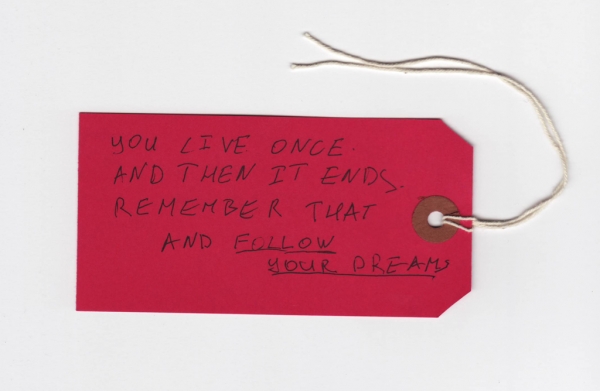 YOU LIVE ONCE.
AND THEN IT ENDS.
REMEMBER THAT
AND FOLLOW
YOUR DREAMS